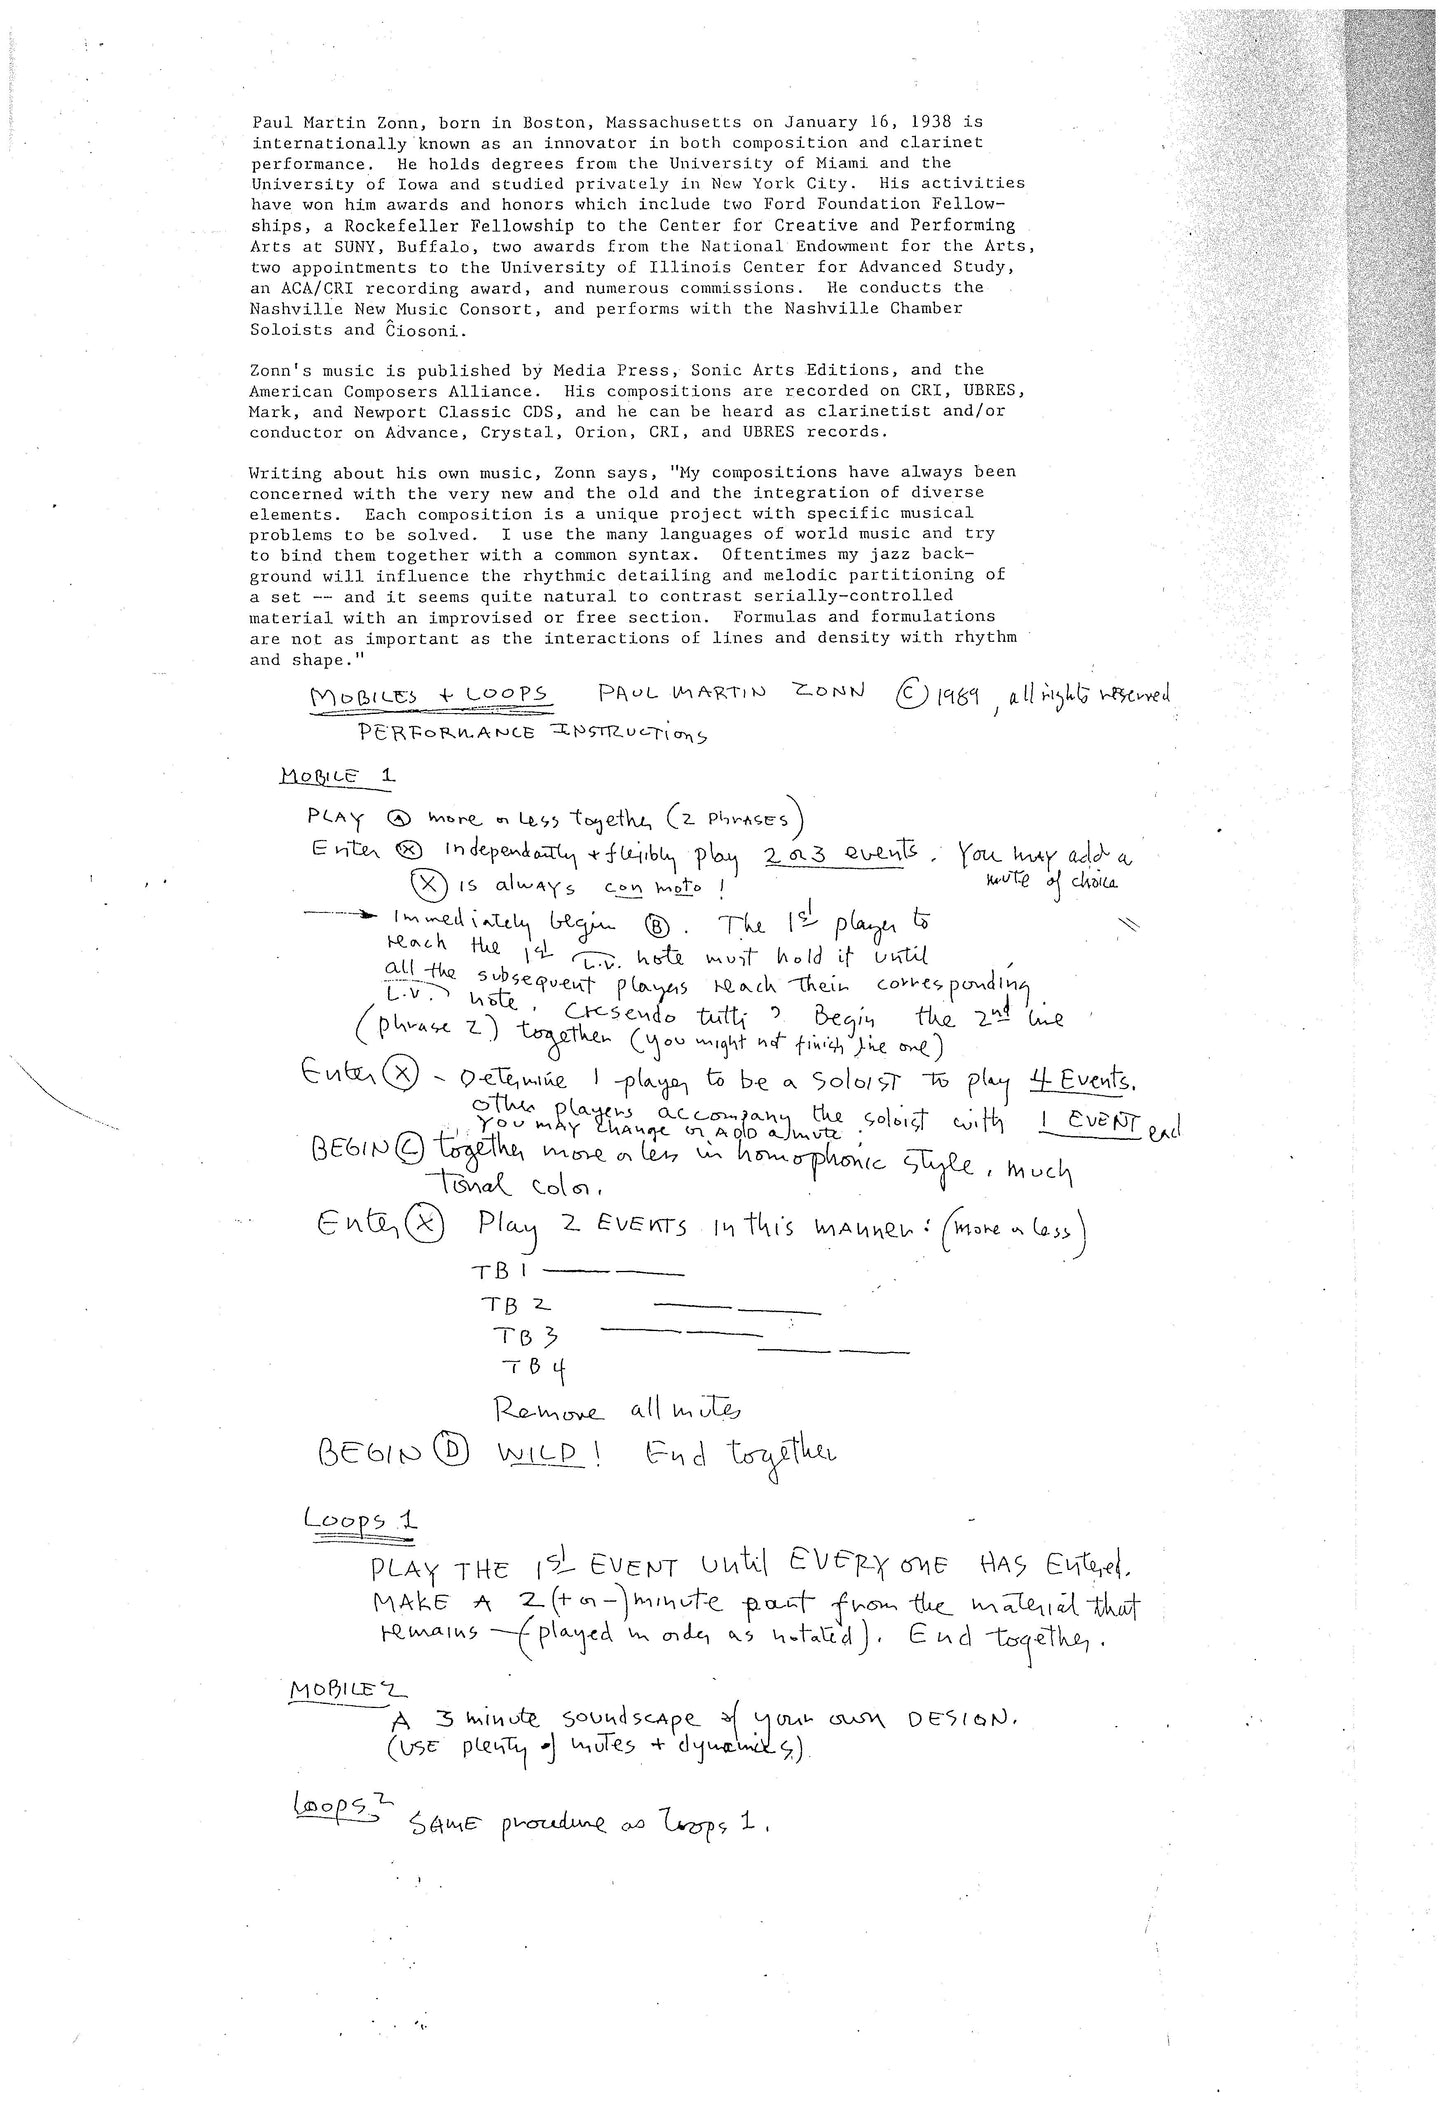 Paul Martin Zonn, born in Boston, Massachusetts on January 16, 1938 is
internationally known as an innovator in both composition and clarinet
performance.  He holds degrees from the University of Miami and the
University of Iowa and studied privately in New York City.  His activities
have won him awards and honors which include two Ford Foundation Fellow-
ships, a Rockefeller Fellowship to the Center for Creative and Performing
Arts at SUNY, Buffalo, two awards from the National Endowment for the Arts,
two appointments to the University of Illinois Center for Advanced Study,
an ACA/CRI recording award, and numerous commissions.  He conducts the
Nashville New Music Consort, and performs with the Nashville Chamber
Soloists and Ĉiosoni.
Zonn's music is published by Media Press, Sonic Arts Editions, and the
American Composers Alliance.  His compositions are recorded on CRI, UBRES,
Mark, and Newport Classic CDS, and he can be heard as clarinetist and/or
conductor on Advance, Crystal, Orion, CRI, and UBRES records.
Writing about his own music, Zonn says, "My compositions have always been
concerned with the very new and the old and the integration of diverse
elements.  Each composition is a unique project with specific musical
problems to be solved.  I use the many languages of world music and try
to bind them together with a common syntax.  Oftentimes my jazz back-
ground will influence the rhythmic detailing and melodic partitioning of
a set -- and it seems quite natural to contrast serially-controlled
material with an improvised or free section.  Formulas and formulations
are not as important as the interactions of lines and density with rhythm
and shape."
MOBILES + LOOPS PAUL MARTIN ZONN © 1989, all rights reserved
PERFORMANCE INSTRUCTIONS
MOBILE 1
PLAY Ⓐ more or less together (2 PHRASES)
Enter Ⓧ Independantly + flexibly play 2 or 3 events. You may add a
mute of choice
Ⓧ is always con moto!
→ Immediately begin Ⓑ. The 1st player to
reach the 1st L.V. note must hold it until
all the subsequent players reach their corresponding
L.V. note. Cresendo tutti? Begin the 2nd line
(phrase 2) together (you might not finish line one)
Enter Ⓧ - Determine 1 player to be a SOLOIST to play 4 Events.
other players accompany the soloist with 1 EVENT each
YOU MAY CHANGE or ADD a mute.
BEGIN Ⓒ together more or less in homophonic style, much
Tonal color.
Enter Ⓧ Play 2 EVENTS in this MANNER: (more or less)
TB 1
TB 2
TB 3
TB 4
Remove all mutes
BEGIN Ⓓ WILD! End together
Loops 1
PLAY THE 1st EVENT until EVERYONE HAS Entered.
MAKE A 2 (+ or -) minute part from the material that
remains - (played in order as notated). End together.
MOBILE 2
A 3 minute soundscape of your own DESIGN.
(USE plenty of mutes + dynamics).
Loops 2
SAME procedure as Loops 1.